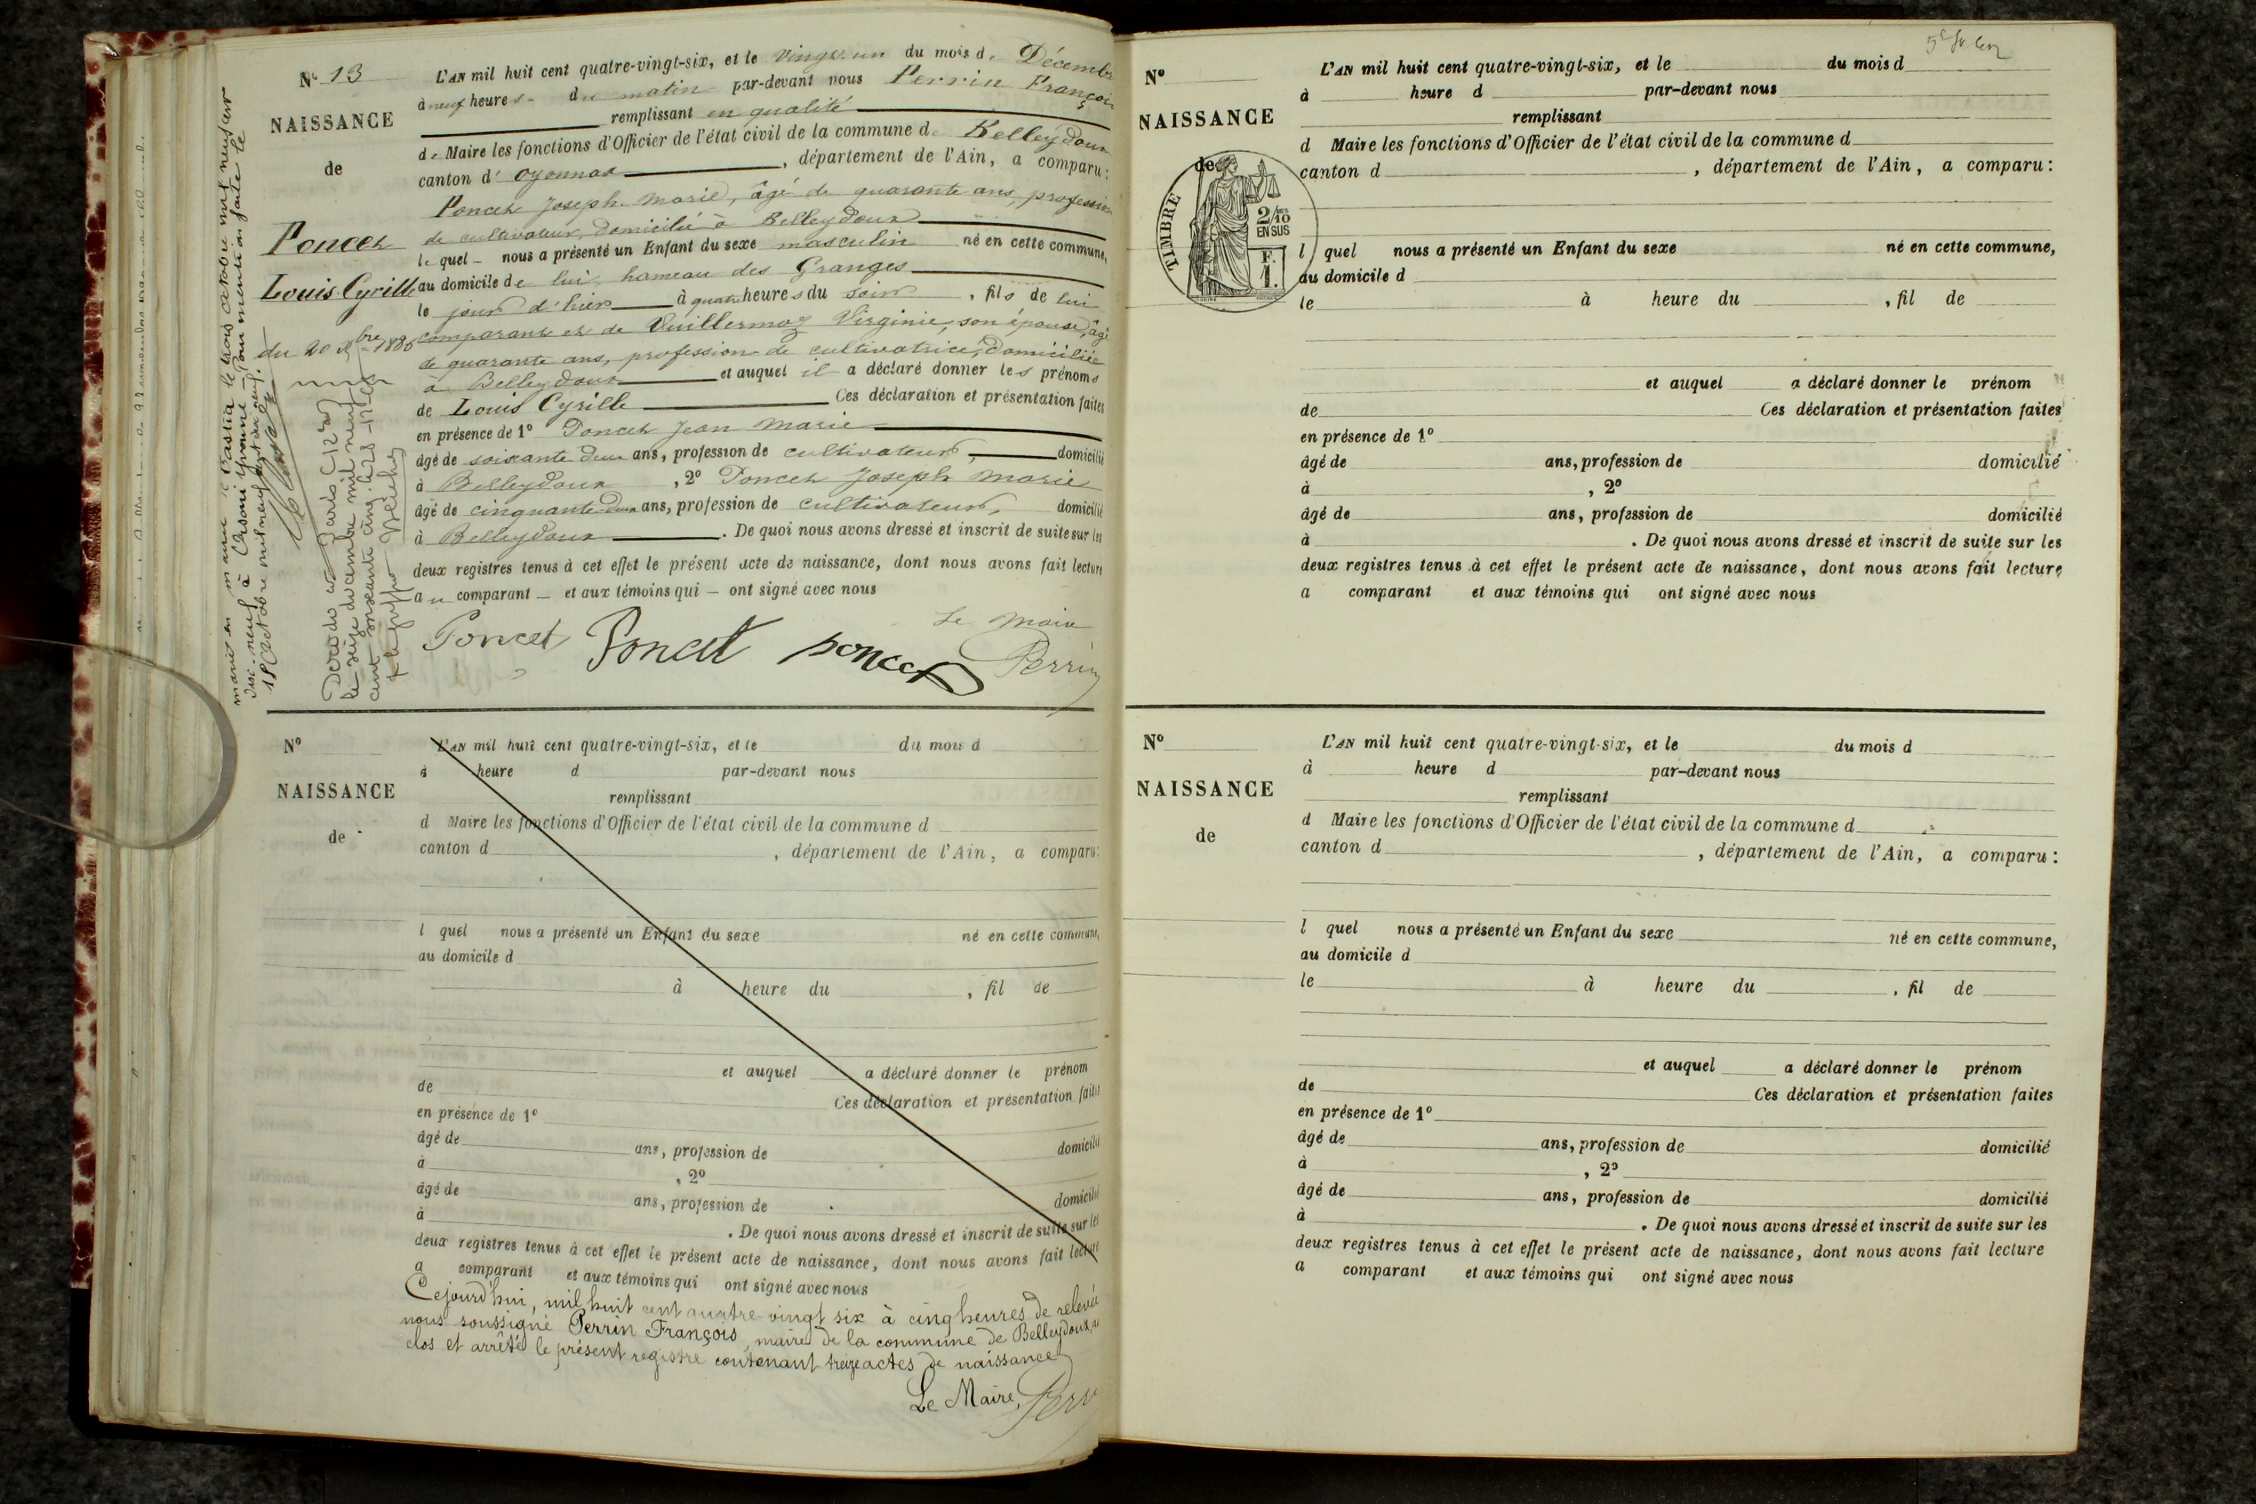 N° 13
NAISSANCE
de
Poncet
Louis Cyrille
du 20 Xbre 1886
L'AN mil huit cent quatre-vingt-six, et le vingt un du mois de Décembre
à neuf heures du matin par-devant nous Perrin François
remplissant en qualité
de Maire les fonctions d'Officier de l'état civil de la commune de Belleydoux
canton d'Oyonnax, département de l'Ain, a comparu:
Poncet Joseph Marie, âgé de quarante ans, profession
de cultivateur, domicilié à Belleydoux
lequel nous a présenté un Enfant du sexe masculin né en cette commune,
au domicile de lui, hameau des Granges
le jour d'hier à quatre heures du soir, fils de lui
comparant et de Vuillermoz Virginie, son épouse, âgée
de quarante ans, profession de cultivatrice, domiciliée
à Belleydoux et auquel il a déclaré donner les prénoms
de Louis Cyrille Ces déclaration et présentation faites
en présence de 1° Poncet Jean Marie
âgé de soixante deux ans, profession de cultivateur, domicilié
à Belleydoux, 2° Poncet Joseph Marie
âgé de cinquante deux ans, profession de cultivateur, domicilié
à Belleydoux. De quoi nous avons dressé et inscrit de suite sur les
deux registres tenus à cet effet le présent acte de naissance, dont nous avons fait lecture
au comparant et aux témoins qui ont signé avec nous
Le Maire
Poncet Poncet poncet Perrin
le trois octobre mil neuf cent
dix-neuf à
18 octobre mil neuf cent dix neuf.
Décédé à Paris (12e)
le seize décembre mil neuf
cent soixante cinq
N°
NAISSANCE
de
L'AN mil huit cent quatre-vingt-six, et le du mois d
à heure d par-devant nous
remplissant
d Maire les fonctions d'Officier de l'état civil de la commune d
canton d , département de l'Ain, a comparu:
l quel nous a présenté un Enfant du sexe né en cette commune,
au domicile d
à heure du , fil de
et auquel a déclaré donner le prénom
de Ces déclaration et présentation faites
en présence de 1°
âgé de ans, profession de domicilié
à , 2°
âgé de ans, profession de domicilié
à . De quoi nous avons dressé et inscrit de suite sur les
deux registres tenus à cet effet le présent acte de naissance, dont nous avons fait lecture
a comparant et aux témoins qui ont signé avec nous
Cejourd'hui, mil huit cent quatre vingt six à cinq heures de relevée
nous soussigné Perrin François, maire de la commune de Belleydoux, a
clos et arrêté le présent registre contenant treize actes de naissance
Le Maire, Perri
N°
NAISSANCE
de
TIMBRE
2/10
EN SUS
F.
1.
L'AN mil huit cent quatre-vingt-six, et le du mois d
à heure d par-devant nous
remplissant
d Maire les fonctions d'Officier de l'état civil de la commune d
canton d , département de l'Ain, a comparu:
l quel nous a présenté un Enfant du sexe né en cette commune,
au domicile d
le à heure du , fil de
et auquel a déclaré donner le prénom
de Ces déclaration et présentation faites
en présence de 1°
âgé de ans, profession de domicilié
à , 2°
âgé de ans, profession de domicilié
à . De quoi nous avons dressé et inscrit de suite sur les
deux registres tenus à cet effet le présent acte de naissance, dont nous avons fait lecture
a comparant et aux témoins qui ont signé avec nous
N°
NAISSANCE
de
L'AN mil huit cent quatre-vingt-six, et le du mois d
à heure d par-devant nous
remplissant
d Maire les fonctions d'Officier de l'état civil de la commune d
canton d , département de l'Ain, a comparu:
l quel nous a présenté un Enfant du sexe né en cette commune,
au domicile d
le à heure du , fil de
et auquel a déclaré donner le prénom
de Ces déclaration et présentation faites
en présence de 1°
âgé de ans, profession de domicilié
à , 2°
âgé de ans, profession de domicilié
à . De quoi nous avons dressé et inscrit de suite sur les
deux registres tenus à cet effet le présent acte de naissance, dont nous avons fait lecture
a comparant et aux témoins qui ont signé avec nous